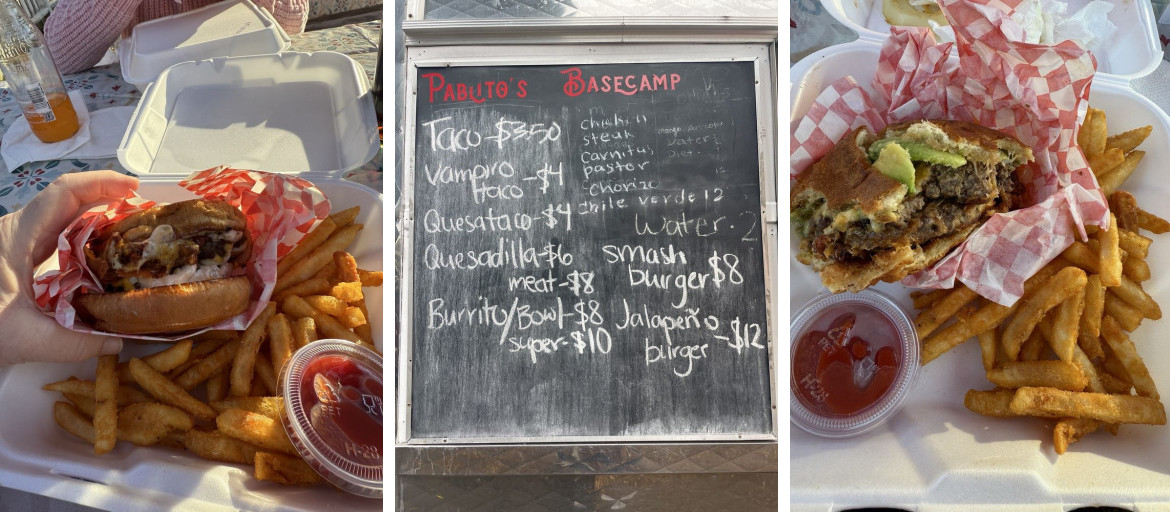 PABLITO'S BASECAMP
Taco-$3.50
Vampiro taco-$4
Quesataco-$4
Quesadilla-$6
meat-$8
Burrito/Bowl-$8
super-$10
chicken
steak
Carnitas
pastor
chorizo
chile verde 12
Water.2
smash burger $8
Jalapeño burger-$12
H-28